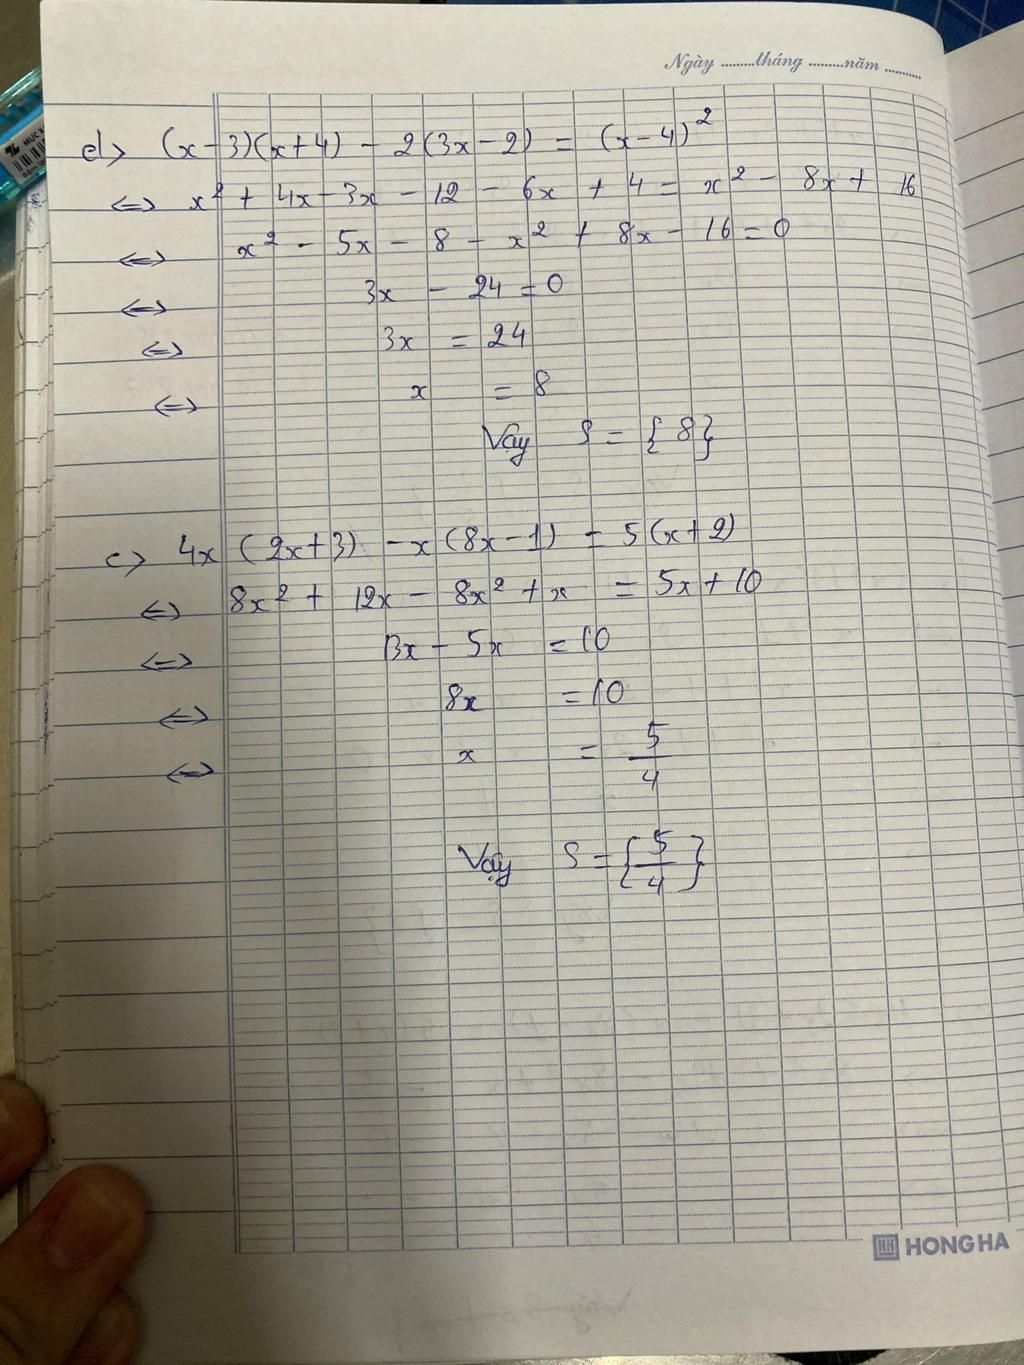 Ngày .........tháng .........năm .........
d> (x-3)(x+4) - 2(3x-2) = (x-4)²
<=> x² + 4x - 3x - 12 - 6x + 4 = x² - 8x + 16
<=> x² - 5x - 8 - x² + 8x - 16 = 0
<=> 3x - 24 = 0
<=> 3x = 24
<=> x = 8
Vậy S = {8}
c> 4x (2x+3) - x(8x-1) = 5(x+2)
<=> 8x² + 12x - 8x² + x = 5x + 10
<=> 13x - 5x = 10
<=> 8x = 10
<=> x = 5/4
Vậy S = {5/4}
HONG HA